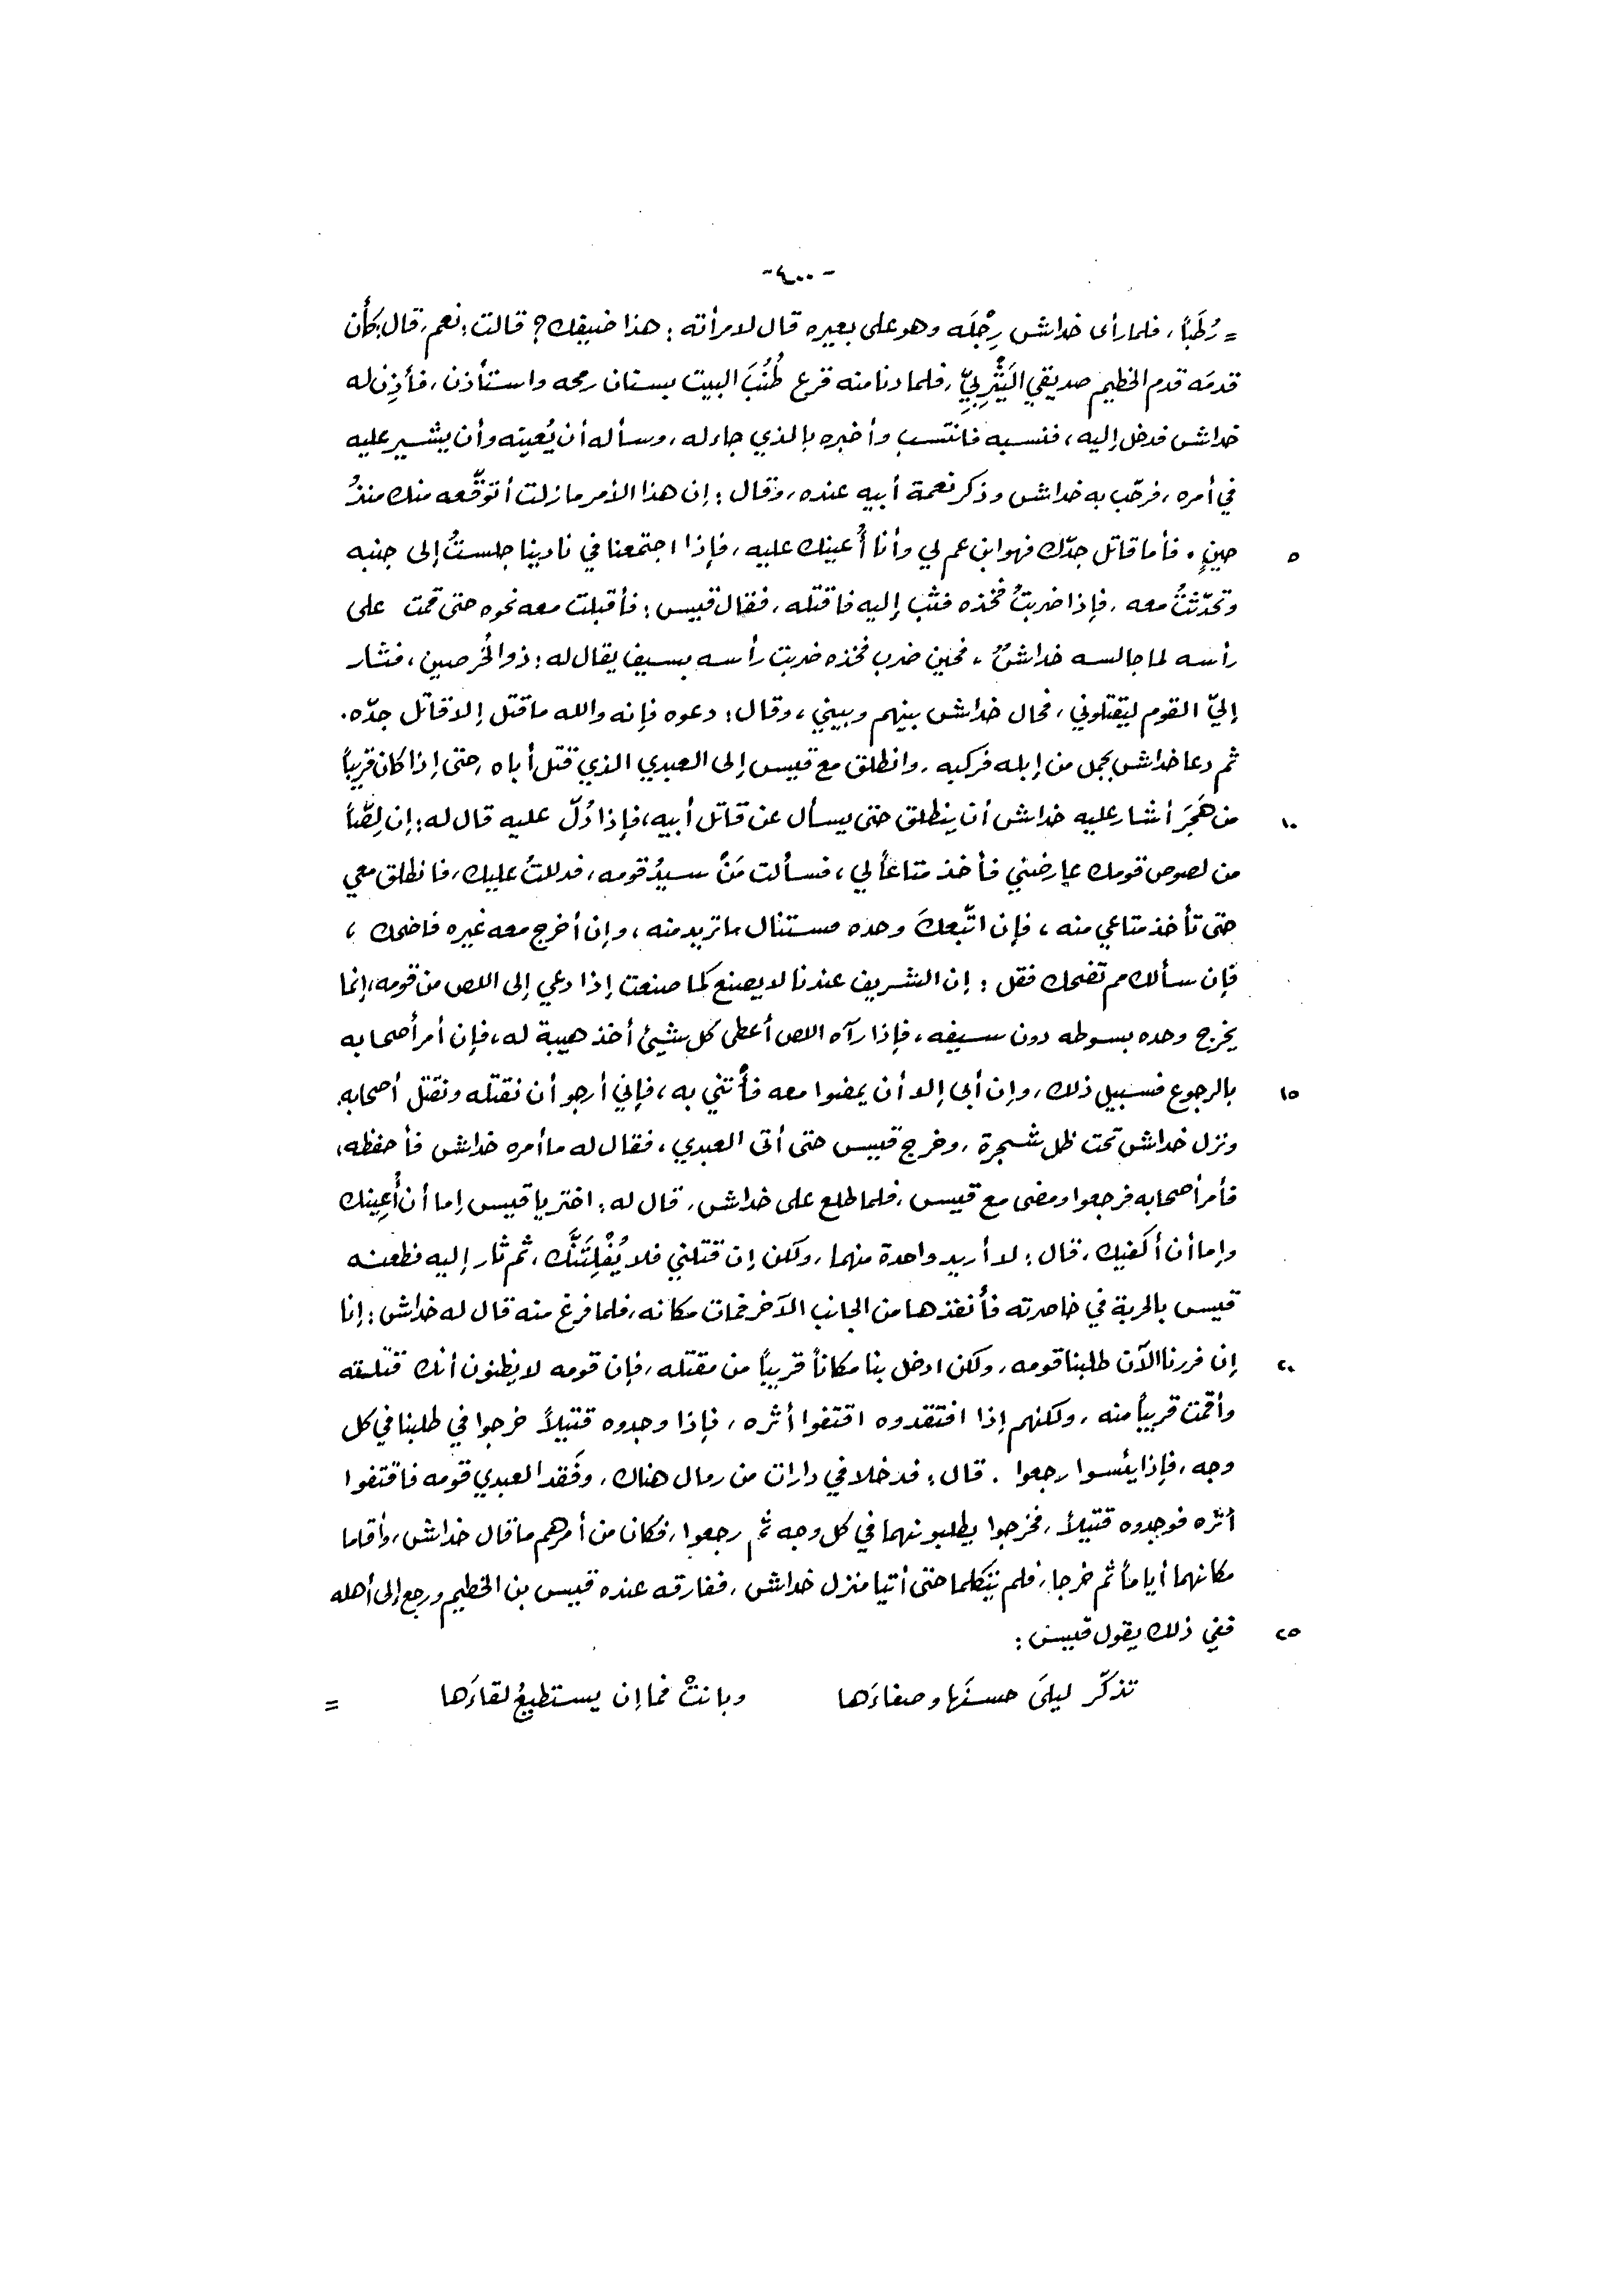 -٤٠٠-
= رُطَباً، فلما رأى خداش رِجْلَه وهو على بعيره قال لامرأته: هذا ضيفك؟ قالت: نعم، قال: كأن
قدمَه قدم الخطيم صديقي اليَثْرِبِيّ، فلما دنا منه قرع طُنُبَ البيت بسنان رمحه واستأذن، فأذِن له
خداش فدخل إليه، فنسبه فانتسب وأخبره بالذي جاء له، وسأله أن يُعينه وأن يشير عليه
في أمره، فرحّب به خداش وذكر نعمة أبيه عنده، وقال: إن هذا الأمر مازلت أتوقّعه منك منذُ
٥ حينٍ. فأما قاتل جدّك فهو ابن عم لي وأنا أُعينك عليه، فإذا اجتمعنا في نادينا جلستُ إلى جنبه
وتحدّثتُ معه، فإذا ضربتُ فخذه فثب إليه فاقتله، فقال قيس: فأقبلت معه نحوه حتى قمت على
رأسه لما جالسه خداشٌ، فحين ضرب فخذه ضربت رأسه بسيف يقال له: ذو الخُرصين، فثار
إليّ القوم ليقتلوني، فحال خداش بينهم وبيني، وقال: دعوه فإنه والله ما قتل إلا قاتل جدّه.
ثم دعا خداش بجمل من إبله فركبه، وانطلق مع قيس إلى العبدي الذي قتل أباه، حتى إذا كان قريباً
١٠ من هَجَرَ أشار عليه خداش أن ينطلق حتى يسأل عن قاتل أبيه، فإذا دُلّ عليه قال له: إن لِصّاً
من لصوص قومك عارضني فأخذ متاعاً لي، فسألت مَنْ سيدُ قومه، فدللتُ عليك، فانطلق معي
حتى تأخذ متاعي منه، فإن اتّبعكَ وحده فستنال ما تريد منه، وإن أخرج معه غيره فاضحك،
فإن سألك مم تضحك فقل: إن الشريف عندنا لا يصنع كما صنعت إذا دعي إلى اللص من قومه، إنما
يخرج وحده بسوطه دون سيفه، فإذا رآه اللص أعطى كل شيئ أخذ هيبة له، فإن أمر أصحابه
١٥ بالرجوع فسبيل ذلك، وإن أبى إلا أن يمضوا معه فأتني به، فإني أرجو أن نقتله ونقتل أصحابه.
ونزل خداش تحت ظل شجرة، وخرج قيس حتى أتى العبدي، فقال له ما أمره خداش فأحفظه،
فأمر أصحابه فرجعوا ومضى مع قيس، فلما طلع على خداش، قال له: اختر يا قيس إما أن أُعينك
وإما أن أكفيك، قال: لا أريد واحدة منهما، ولكن إن قتلني فلا يُفْلِتَنَّك، ثم ثار إليه فطعنه
قيس بالحربة في خاصرته فأنفذها من الجانب الآخر فمات مكانه، فلما فرغ منه قال له خداش: إنا
٢٠ إن فررنا الآن طلبنا قومه، ولكن ادخل بنا مكاناً قريباً من مقتله، فإن قومه لا يظنون أنك قتلته
وأقمت قريباً منه، ولكنهم إذا افتقدوه اقتفوا أثره، فإذا وجدوه قتيلاً خرجوا في طلبنا في كل
وجه، فإذا يئسوا رجعوا. قال: فدخلا في دارات من رمال هناك، وفَقد العبدي قومه فاقتفوا
أثره فوجدوه قتيلاً، فخرجوا يطلبونهما في كل وجه ثم رجعوا، فكان من أمرهم ما قال خداش، وأقاما
مكانهما أياماً ثم خرجا، فلم يتكلما حتى أتيا منزل خداش، ففارقه عنده قيس بن الخطيم ورجع إلى أهله
٢٥ ففي ذلك يقول قيس:
تذكّر ليلَى حسنَها وصفاءَها وبانتْ فما إن يستطيعُ لقاءَها =